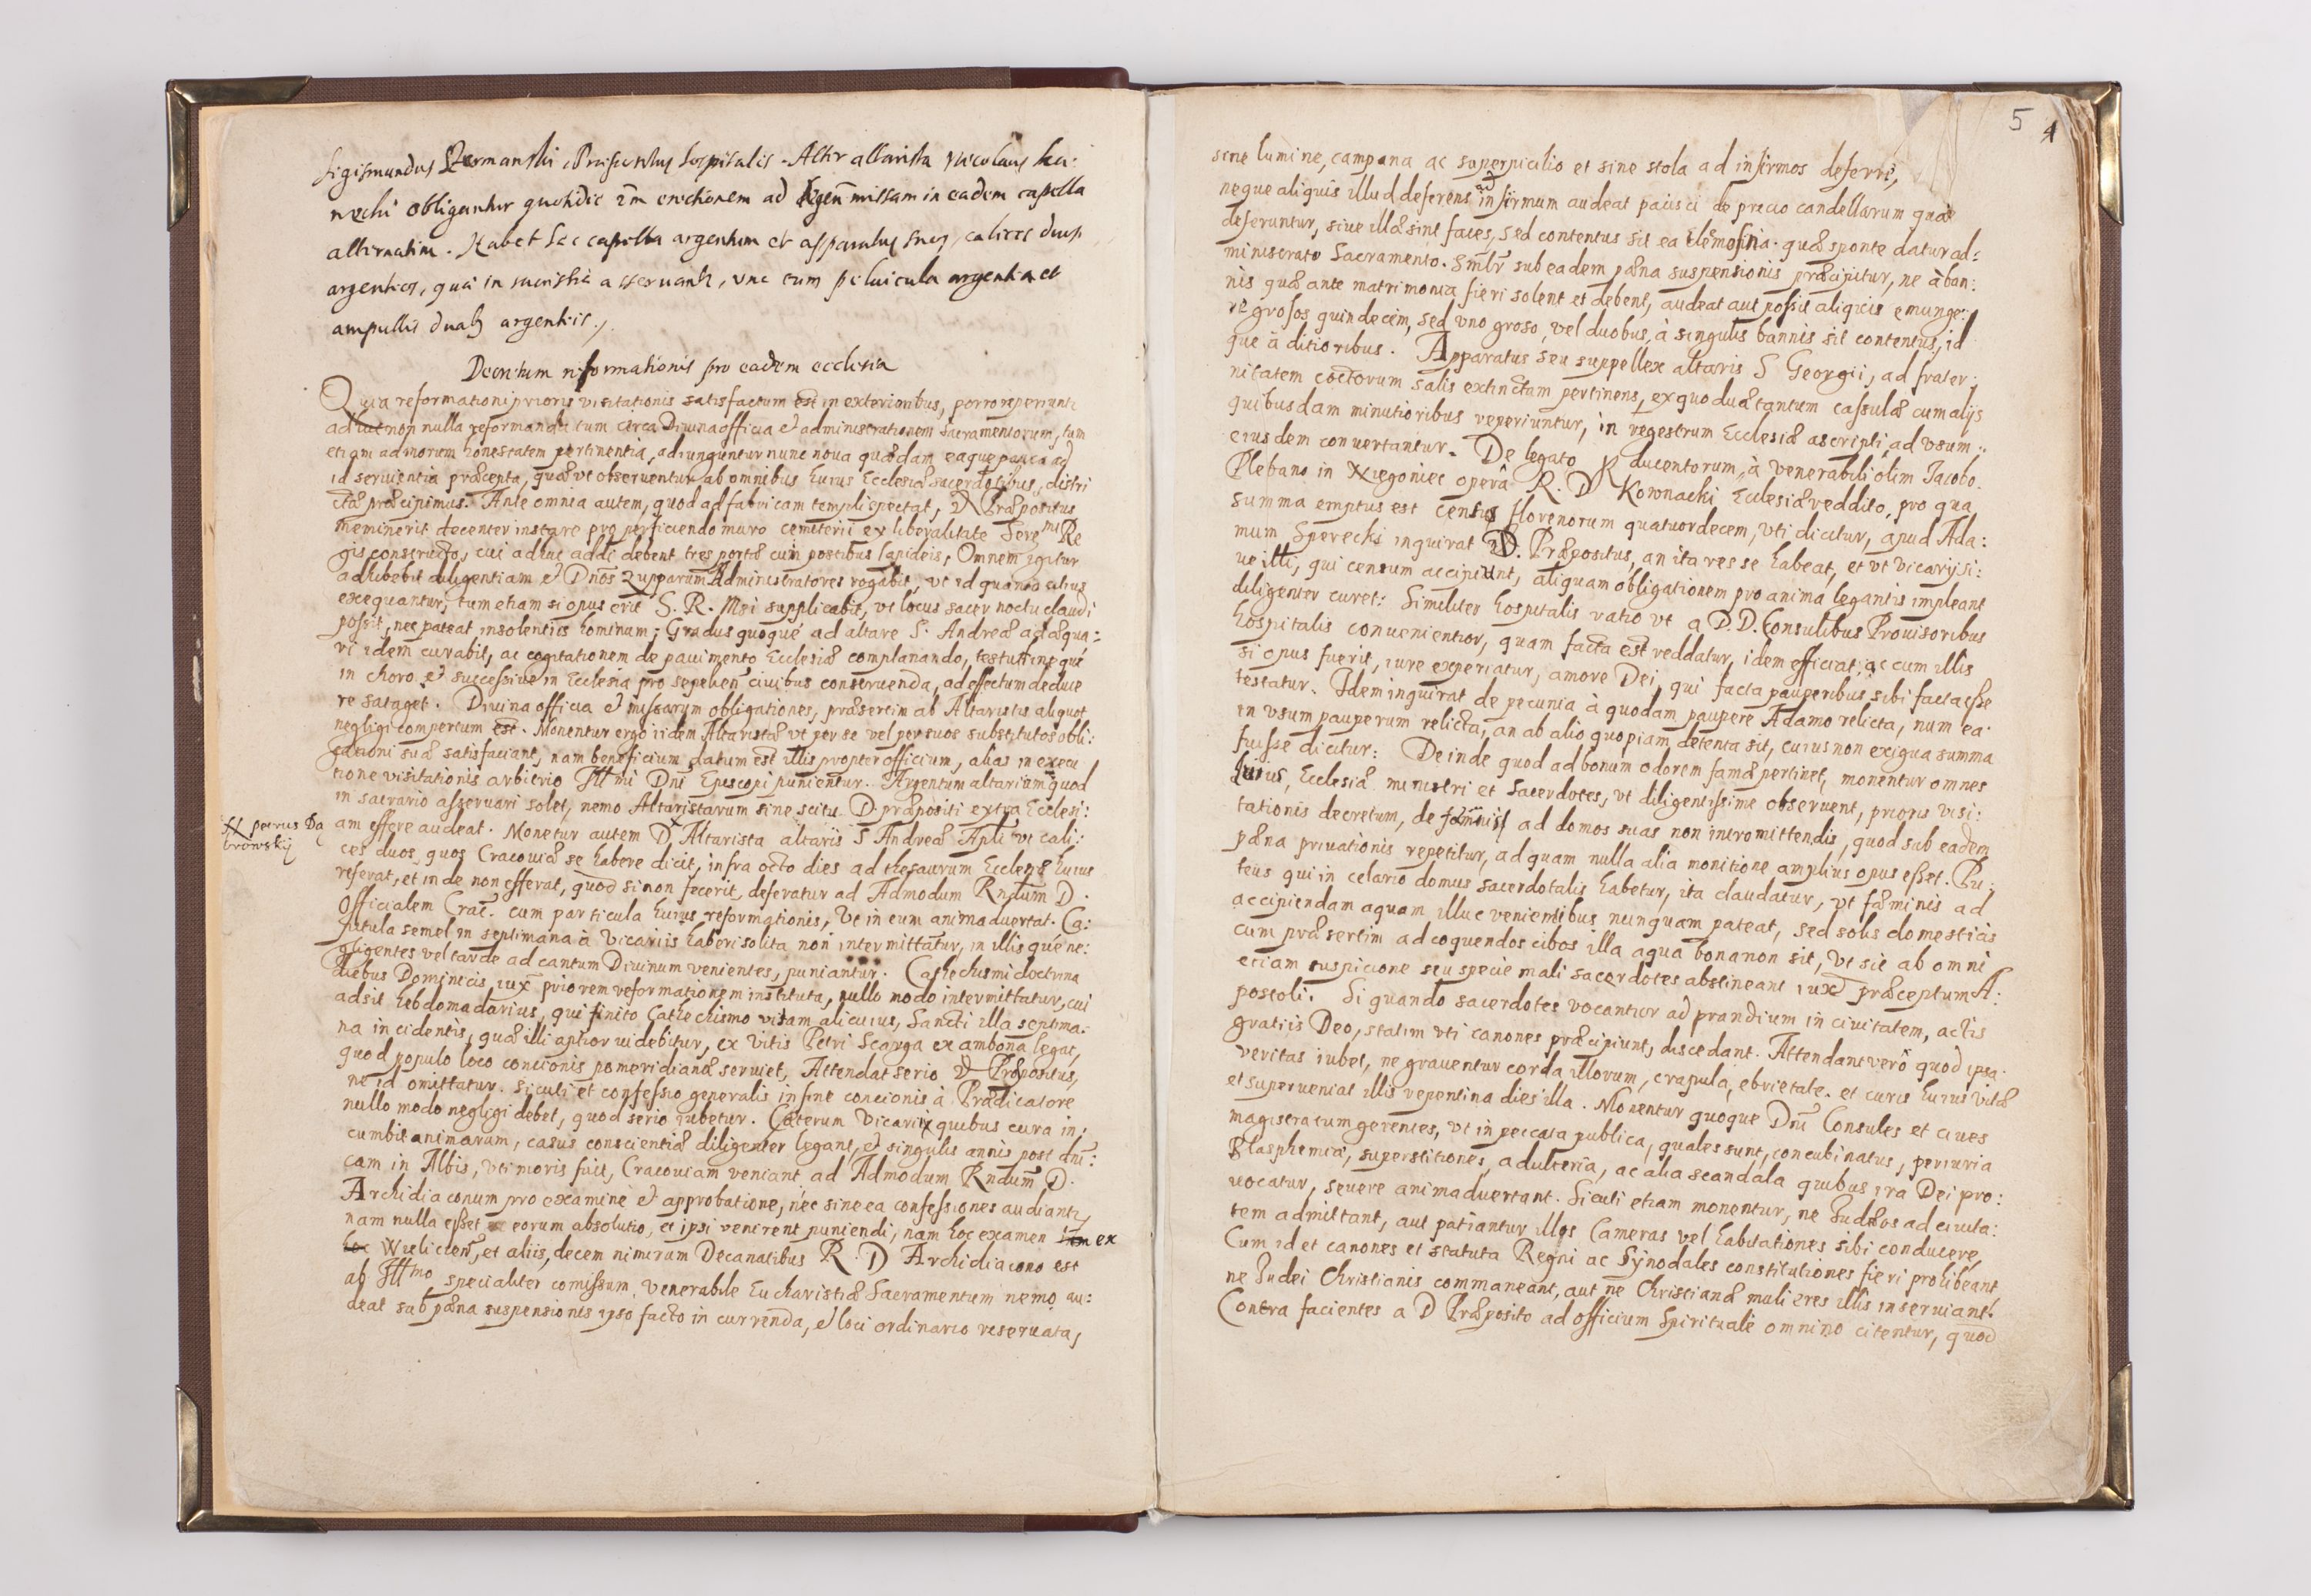 Sigismundus Szermanski, Praesentatus hospitalis. Alter altarista Nicolaus
obligantur quotidie iuxta erectionem ad legen̄ missam in eadem capella
alternatim. Habet haec capella argentum et apparatus suos, calices duos
argenteos, qui in sacristia asservantur, una cum pelvicula argentea et
ampullis duabus argenteis.
Decretum reformationis pro eadem ecclesia
Quia reformationi prioris visitationis satisfactum est in exterioribus, porro reperiuntur
adhuc non nulla reformanda tum circa Divina officia et administrationem Sacramentorum, tum
etiam ad morum honestatem pertinentia, adiunguntur nunc noua quaedam eaque pauca ad
id seruientia praecepta, quae vt obseruentur ab omnibus huius Ecclesiae sacerdotibus, distri
ctae praecipimus. Ante omnia autem, quod ad fabricam templi spectat, D Praepositus
meminerit decenter instare pro perficiendo muro cemiterii ex liberalitate Sere^mi Re
gis constructo, cui adhuc addi debent tres portae cum postibus lapideis, Omnem igitur
adhibebit diligentiam et Dnos Zupparum Administratores rogabit, vt id quanto citius
exequantur, tum etiam si opus erit S. R. Mti supplicabit, vt locus sacer noctu claudi
possit, nec pateat insolentiis hominum; Gradus quoque ad altare S. Andreae adaequa-
ri idem curabit, ac cogitationem de pauimento Ecclesiae complanando, testudineque
in choro et successiue in Ecclesia pro sepelien̄ ciuibus construenda, ad effectum deduce
re sataget. Diuina officia et missarum obligationes, praesertim ab Altaristis aliquot
negligi compertum est. Monentur ergo iidem Altaristae vt per se vel per suos substitutos obli:
gationi suae satisfaciant, nam beneficium datum est illis propter officium, alias in execu
tione visitationis arbitrio Ill^mi Dni Episcopi punientur. Argentum altarium quod
in sacrario asseruari solet, nemo Altaristarum sine scitu D. praepositi extra Ecclesi:
X petrus Dą
browskij
am efferre audeat. Monetur autem D. Altarista altaris S Andreae Apli vt cali:
ces duos, quos Cracouiae se habere dicit, infra octo dies ad thesaurum Ecclesiae huius
referat, et inde non efferat, quod si non fecerit, deferatur ad Admodum Rndum D.
Officialem Crac̄. cum particula huius reformationis, vt in eum animaduertat. Ca:
pitula semel in septimana à Vicariis haberi solita non intermittatur, in illis que ne:
gligentes vel tarde ad cantum Diuinum venientes, puniantur. Cathechismi doctrina
diebus Dominicis, iux̄ priorem reformationem instituta, nullo modo intermittatur, cui
adsit hebdomadarius, qui finito Cathechismo vitam alicuius, Sancti illa septima:
na incidentis, quae illi aptior uidebitur, ex Vitis Petri Scarga ex ambona legat,
quod populo loco concionis pomeridianae seruiet, Attendat serio D Praepositus,
ne id omittatur. Sicuti et confessio generalis in fine concionis à Praedicatore
nullo modo negligi debet, quod serio iubetur. Caeterum Vicarii quibus cura in:
cumbit animarum, casus conscientiae diligenter legant, et singulis annis post dni:
cam in Albis, vti moris fuit, Cracouiam veniant ad Admodum Rndum D.
Archidiaconum pro examine et approbatione, nec sine ea confessiones audiant,
nam nulla esset eorum absolutio, et ipsi venirent puniendi, nam hoc examen ex
Wielicien̄, et aliis, decem nimirum Decanatibus R. D Archidiacono est
ab Ill^mo specialiter comissum, venerabile Eucharistiae Sacramentum nemo au:
deat sub paena suspensionis ipso facto incurrenda, et loci ordinario reseruata,
5 4
sine lumine, campana ac superpicilio et sine stola ad infirmos deferri,
neque aliquis illud deferens ad infirmum audeat pacisci de precio candellarum quae
deferuntur, siue illae sint faces, sed contentus sit ea elemosina quae sponte datur ad:
ministrato Sacramento. Smlr sub eadem paena suspensionis praecipitur, ne à ban:
nis quae ante matrimonia fieri solent et debent, audeat aut possit aliquis emunge:
re grosos quindecim, sed vno groso, vel duobus, à singulis bannis sit contentus, id
que à ditioribus. Apparatus seu suppellex altaris S Georgii, ad frater:
nitatem coctorum salis extinctam pertinens, ex quo duae tantum cassulae cum alijs
quibusdam minutioribus reperiuntur, in regestrum Ecclesiae ascripti, ad vsum
eiusdem conuertantur. De legato ducentorum, à venerabili olim Iacobo
Plebano in Niegoniec operâ R. D Kownacki Ecclesiae reddito, pro qua
summa emptus est census florenorum quatuordecem, vti dicitur, apud Ada:
mum Sperecki inquirat D. Praepositus, an ita res se habeat, et vt Vicarij si:
ue illi, qui censum accipiunt, aliquam obligationem pro anima legantis impleant
diligenter curet: Similiter hospitalis ratio vt a D.D. Consulibus Prouisoribus
hospitalis conuenientior, quam facta est reddatur, idem efficiat, ac cum illis
si opus fuerit, iure experiatur, amore Dei, qui facta pauperibus sibi facta esse
testatur. Idem inquirat de pecunia à quodam paupere Adamo relicta, num ea
in vsum pauperum relicta, an ab alio quopiam detenta sit, cuius non exigua summa
fuisse dicitur: Deinde quod ad bonum odorem famae pertinet, monentur omnes
huius, Ecclesiae ministri et Sacerdotes, vt diligentissime obseruent, prioris visi:
tationis decretum, de faeminis ad domos suas non intromittendis, quod sub eadem
paena priuationis repetitur, ad quam nulla alia monitione amplius opus esset. Pu:
teus qui in celario domus sacerdotalis habetur, ita claudatur, vt faeminis ad
accipiendam aquam illuc venientibus nunquam pateat, sed solis domesticis
cum praesertim ad coquendos cibos illa aqua bona non sit, vt sic ab omni
etiam suspicione seu specie mali sacerdotes abstineant iux̄ praeceptum A:
postoli. Si quando sacerdotes vocantur ad prandium in ciuitatem, actis
gratiis Deo, statim vti canones praecipiunt, discedant. Attendant verò quod ipsa
veritas iubet, ne grauentur corda illorum, crapula, ebrietate. et curis huius vitae
et superueniat illis repentina dies illa. Monentur quoque Dni Consules et ciues
magistratum gerentes, vt in peccata publica, quales sunt, concubinatus, periuria
Blasphemiae, superstitiones, adulteria, ac alia scandala quibus ira Dei pro:
uocatur, seuere animaduertant. Sicuti etiam monentur, ne Iudaeos ad ciuita:
tem admittant, aut patiantur illos Cameras vel habitationes sibi conducere,
Cum id et canones et statuta Regni ac Synodales constitutiones fieri prohibeant
ne Iudei Christianis commaneant, aut ne Christianae mulieres illis inseruiant.
Contra facientes a D Praeposito ad officium Spirituale omnino citentur, quod